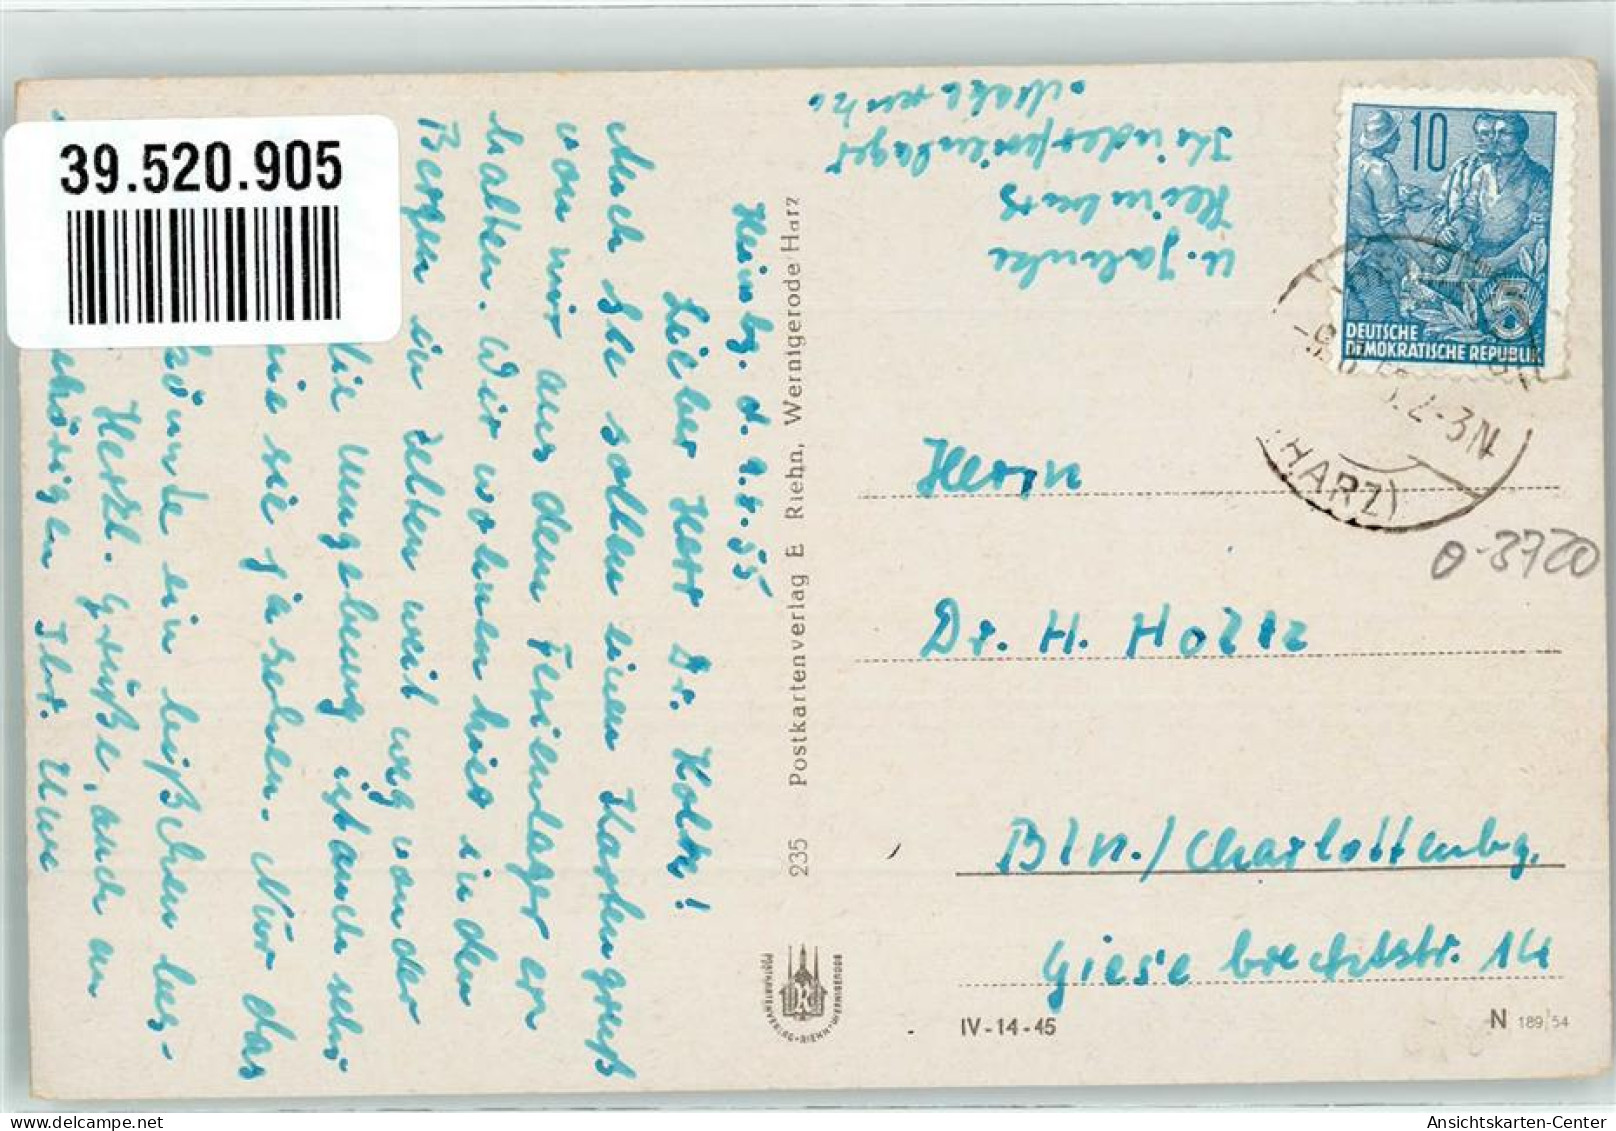 39.520.905
Heimbg. d. 9.8.55
Lieber Herr Dr. Holtz!
Auch Sie sollen einen Kartengruß
von mir aus dem Ferienlager er
halten. Wir wohnen hier in den
Bergen in Zelten weit weg von der
die Umgebung ist auch sehr
wie sie ja sehen. Nur das
könnte ein bißchen bes-
Herzl. Grüße, auch an
Ihr Uwe
235 Postkartenverlag E Riehn, Wernigerode Harz
POSTKARTENVERLAG · RIEHN · WERNIGERODE
U. Jahnke
Heimburg
Kinderferienlager
10
5
DEUTSCHE
DEMOKRATISCHE REPUBLIK
2-3N
(HARZ)
O-3720
Herrn
Dr. H. Holtz
Bln./Charlottenbg.
Giesebrechtstr. 14
IV-14-45
N 189/54
Ansichtskarten-Center